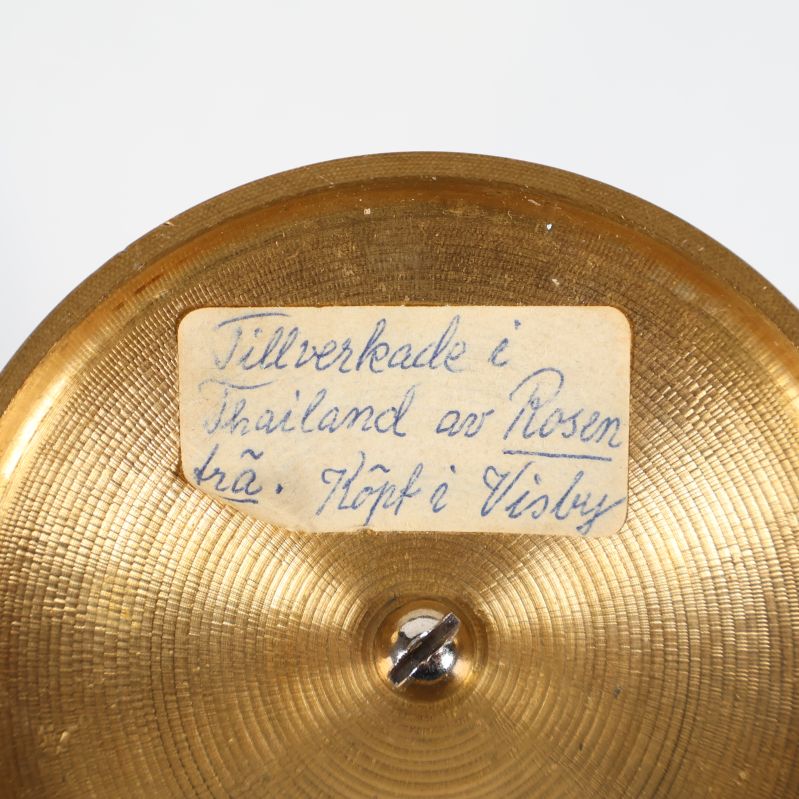 Tillverkade i
Thailand av Rosen
trä. Köpt i Visby